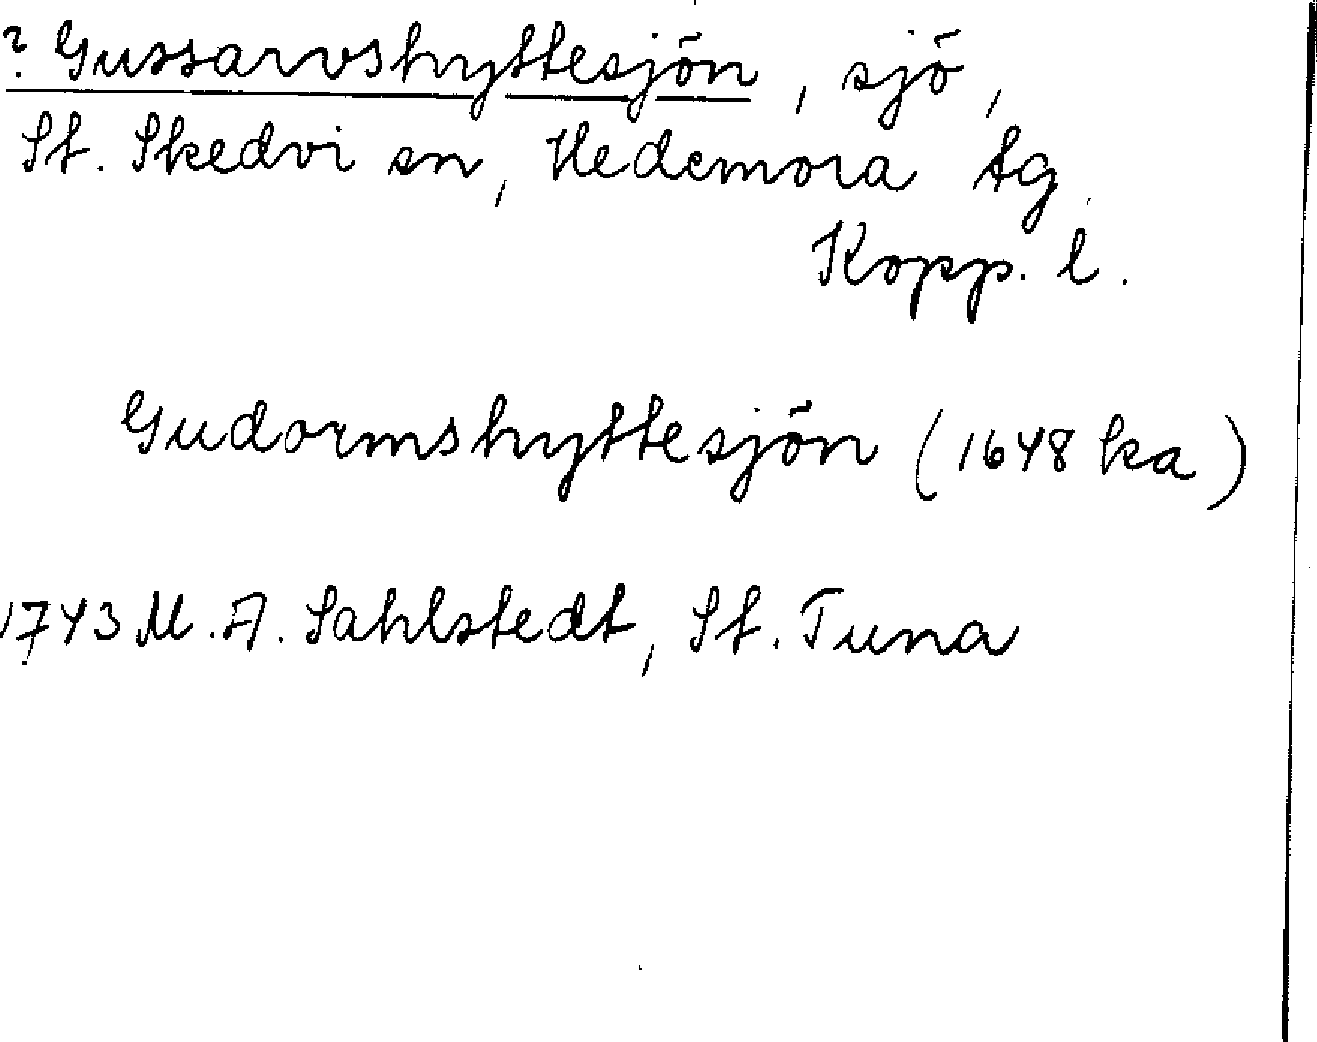 ? Gussarvshyttesjön, sjö,
St. Skedvi sn, Hedemora tg
Kopp. l.
Gudormshyttesjön (1648 ka)
1743 M. A. Sahlstedt, St. Tuna